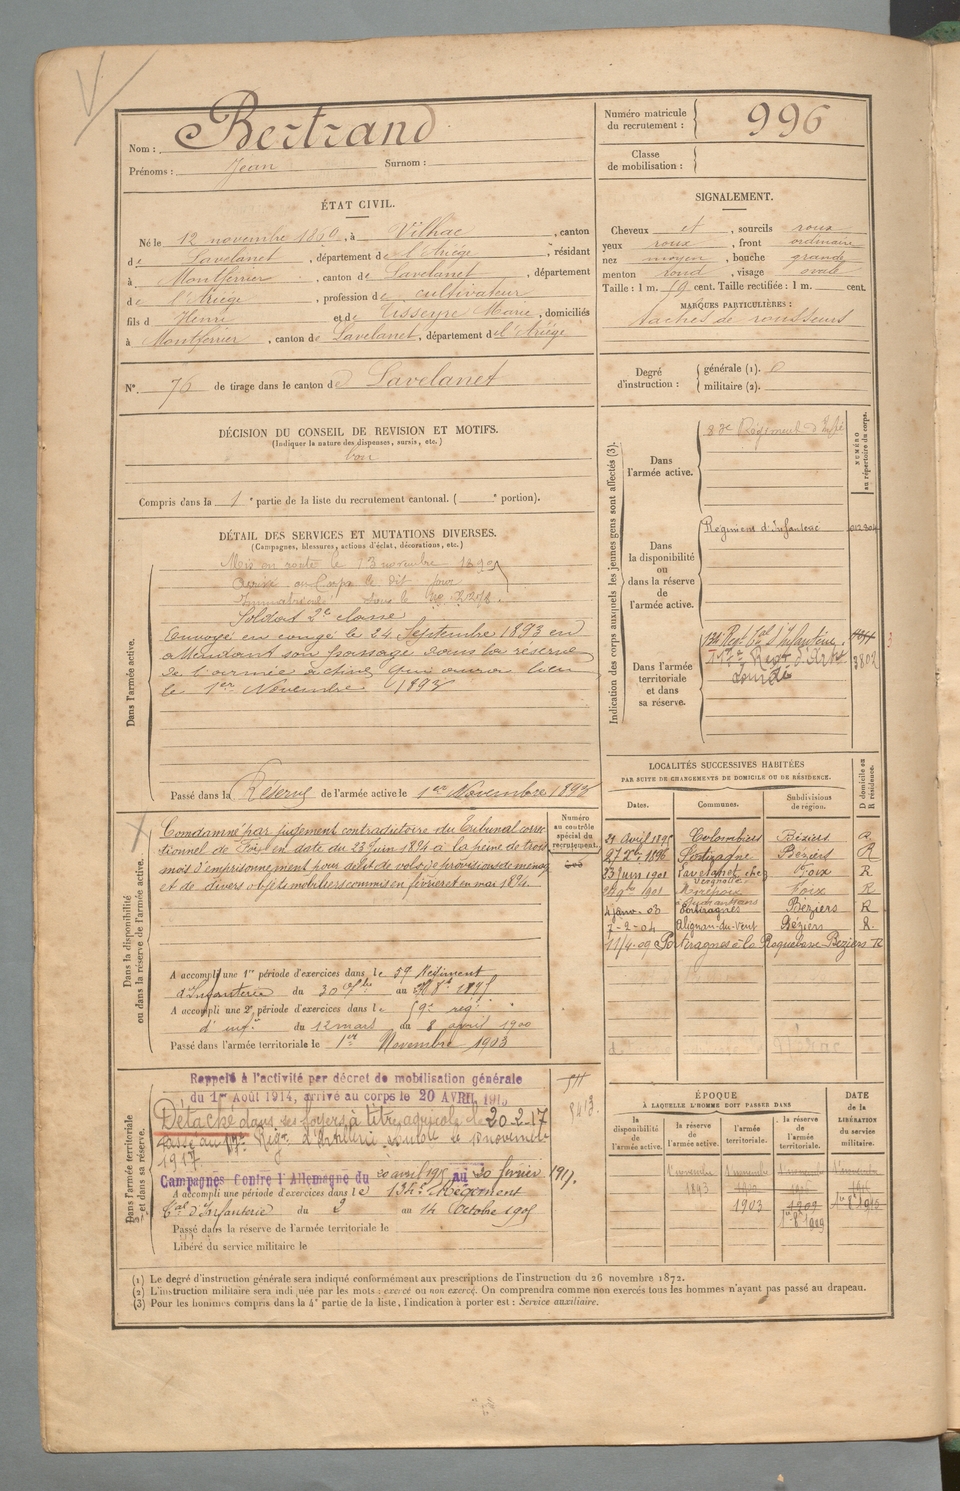 Nom : Bertrand
Prénoms : Jean Surnom :
Numéro matricule du recrutement : 996
Classe de mobilisation :
ÉTAT CIVIL.
Né le 12 novembre , à Vilhac , canton
de Lavelanet , département de l'Ariège , résidant
à Montferrier , canton de Lavelanet , département
de l'Ariège , profession de cultivateur
fils d Henri et de Tisseyre Marie , domiciliés
à Montferrier , canton de Lavelanet , département de l'Ariège
N° 76 de tirage dans le canton d Lavelanet
SIGNALEMENT.
Cheveux et , sourcils roux
yeux roux , front ordinaire
nez moyen , bouche grande
menton rond , visage ovale
Taille : 1 m. cent. Taille rectifiée : 1 m. cent.
MARQUES PARTICULIÈRES :
taches de rousseurs
Degré d'instruction : générale (1).
militaire (2).
DÉCISION DU CONSEIL DE REVISION ET MOTIFS.
(Indiquer la nature des dispenses, sursis, etc.)
bon
Compris dans la 1e partie de la liste du recrutement cantonal. ( e portion).
DÉTAIL DES SERVICES ET MUTATIONS DIVERSES.
(Campagnes, blessures, actions d'éclat, décorations, etc.)
Dans l'armée active.
Mis en route le 13 novembre
Arrivé au Corps le dit jour
Immatriculé sous le No
Soldat 2e classe
Envoyé en congé le 24 Septembre 1893 en
attendant son passage dans la réserve
de l'armée active qui aura lieu
le 1er Novembre 1893
Passé dans la Réserve de l'armée active le 1er Novembre 1893
Indication des corps auxquels les jeunes gens sont affectés (3).
NUMÉRO au répertoire du corps.
Dans l'armée active.
Régiment d'Infie
Dans la disponibilité ou dans la réserve de l'armée active.
Régiment d'Infanterie
Dans l'armée territoriale et dans sa réserve.
134e Regt tal d'Infanterie
Regt d'Artie
Lourde
LOCALITÉS SUCCESSIVES HABITÉES
PAR SUITE DE CHANGEMENTS DE DOMICILE OU DE RÉSIDENCE.
Dates. Communes. Subdivisions de région. D domicile ou R résidence.
Colombiers Béziers R
Béziers R
23 Juin 1901 Lavelanet, chez Foix R
1901 Mirepoix Foix R
4 janv. 03 Portiragnes Béziers R
7-2-04 Alignan-du-Vent Béziers R.
11/4-09 Portiragnes à la Roquehaute Béziers R
Dans la disponibilité ou dans la réserve de l'armée active.
Numéro au contrôle spécial du recrutement.
Condamné par jugement contradictoire du Tribunal correc
tionnel de Foix en date du 23 Juin 1894 à la peine de trois
mois d'emprisonnement pour délit de vols de provisions de ménage
et de divers objets mobiliers commis en février et en mai 1894.
A accompli une 1re période d'exercices dans le 59 Régiment
d'Infanterie du 30 au
A accompli une 2e période d'exercices dans le 59e rég.
d' infie du 12 mars au 8 avril 1900
Passé dans l'armée territoriale le 1er Novembre 1903
Dans l'armée territoriale et dans sa réserve.
Rappelé à l'activité par décret de mobilisation générale
du 1er Août 1914, arrivé au corps le 20 AVRIL 1915
Détaché dans ses foyers à titre agricole le 20-2-17
Passé au Régt d'Artillerie le novembre
1917
Campagnes Contre l'Allemagne du 20 avril 1915 au 20 février 1917.
A accompli une période d'exercices dans le 134e Régiment
tal d'Infanterie du 2 au 14 Octobre 1905
Passé dans la réserve de l'armée territoriale le
Libéré du service militaire le
ÉPOQUE
À LAQUELLE L'HOMME DOIT PASSER DANS
la disponibilité de l'armée active. la réserve de l'armée active. l'armée territoriale. la réserve de l'armée territoriale.
DATE de la LIBÉRATION du service militaire.
1er novembre 1er novembre 1er novembre 1er novembre
1893
1903 1909
(1) Le degré d'instruction générale sera indiqué conformément aux prescriptions de l'instruction du 26 novembre 1872.
(2) L'instruction militaire sera indiquée par les mots : exercé ou non exercé. On comprendra comme non exercés tous les hommes n'ayant pas passé au drapeau.
(3) Pour les hommes compris dans la 4e partie de la liste, l'indication à porter est : Service auxiliaire.